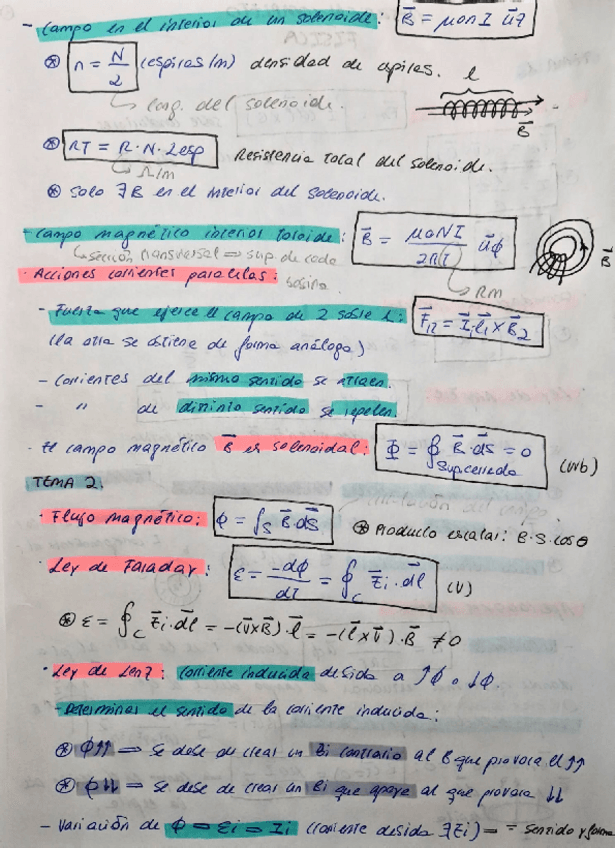 - Campo en el interior de un solenoide: B⃗ = μonI u⃗
⊛ n = N/2 (espiras/m) densidad de espiras. l
↳ long. del solenoide. B⃗
⊛ RT = R·N·2esp Resistencia total del solenoide.
↳ R/m
⊛ Solo ∃B en el interior del solenoide.
- Campo magnético interior toroide: B⃗ = μoNI / 2πr u⃗ϕ B⃗
↳ sección transversal ⇒ sup. de cada bobina. Rm
· Acciones corrientes paralelas:
- Fuerza que ejerce el campo de 2 sobre 1: F⃗12 = I⃗1l1 × B⃗2
(la otra se obtiene de forma análoga)
- Corrientes del mismo sentido se atraen.
- " de distinto sentido se repelen.
· El campo magnético B⃗ es solenoidal: Φ = ∮ B⃗·ds⃗ = 0 (wb)
Sup cerrada
TEMA 2.
· Flujo magnético: ϕ = ∫S B⃗·ds⃗ ⊛ Producto escalar: B·S·cosθ
· Ley de Faraday: ε = -dϕ/dt = ∮C E⃗i·dl⃗ (V)
⊛ ε = ∮C E⃗i·dl⃗ = -(v⃗×B⃗)·l⃗ = -(l⃗×v⃗)·B⃗ ≠ 0
· Ley de Lenz: Corriente inducida debida a ↑ϕ o ↓ϕ.
- Determinar el sentido de la corriente inducida:
⊛ ϕ↑↑ ⇒ se debe de crear un Bi contrario al B que provoca el ↑↑
⊛ ϕ↓↓ ⇒ se debe de crear un Bi que apoye al que provoca ↓↓
- Variación de ϕ ⇒ εi ⇒ Ii (corriente debida ∃Ei) ⇒ = sentido y forma